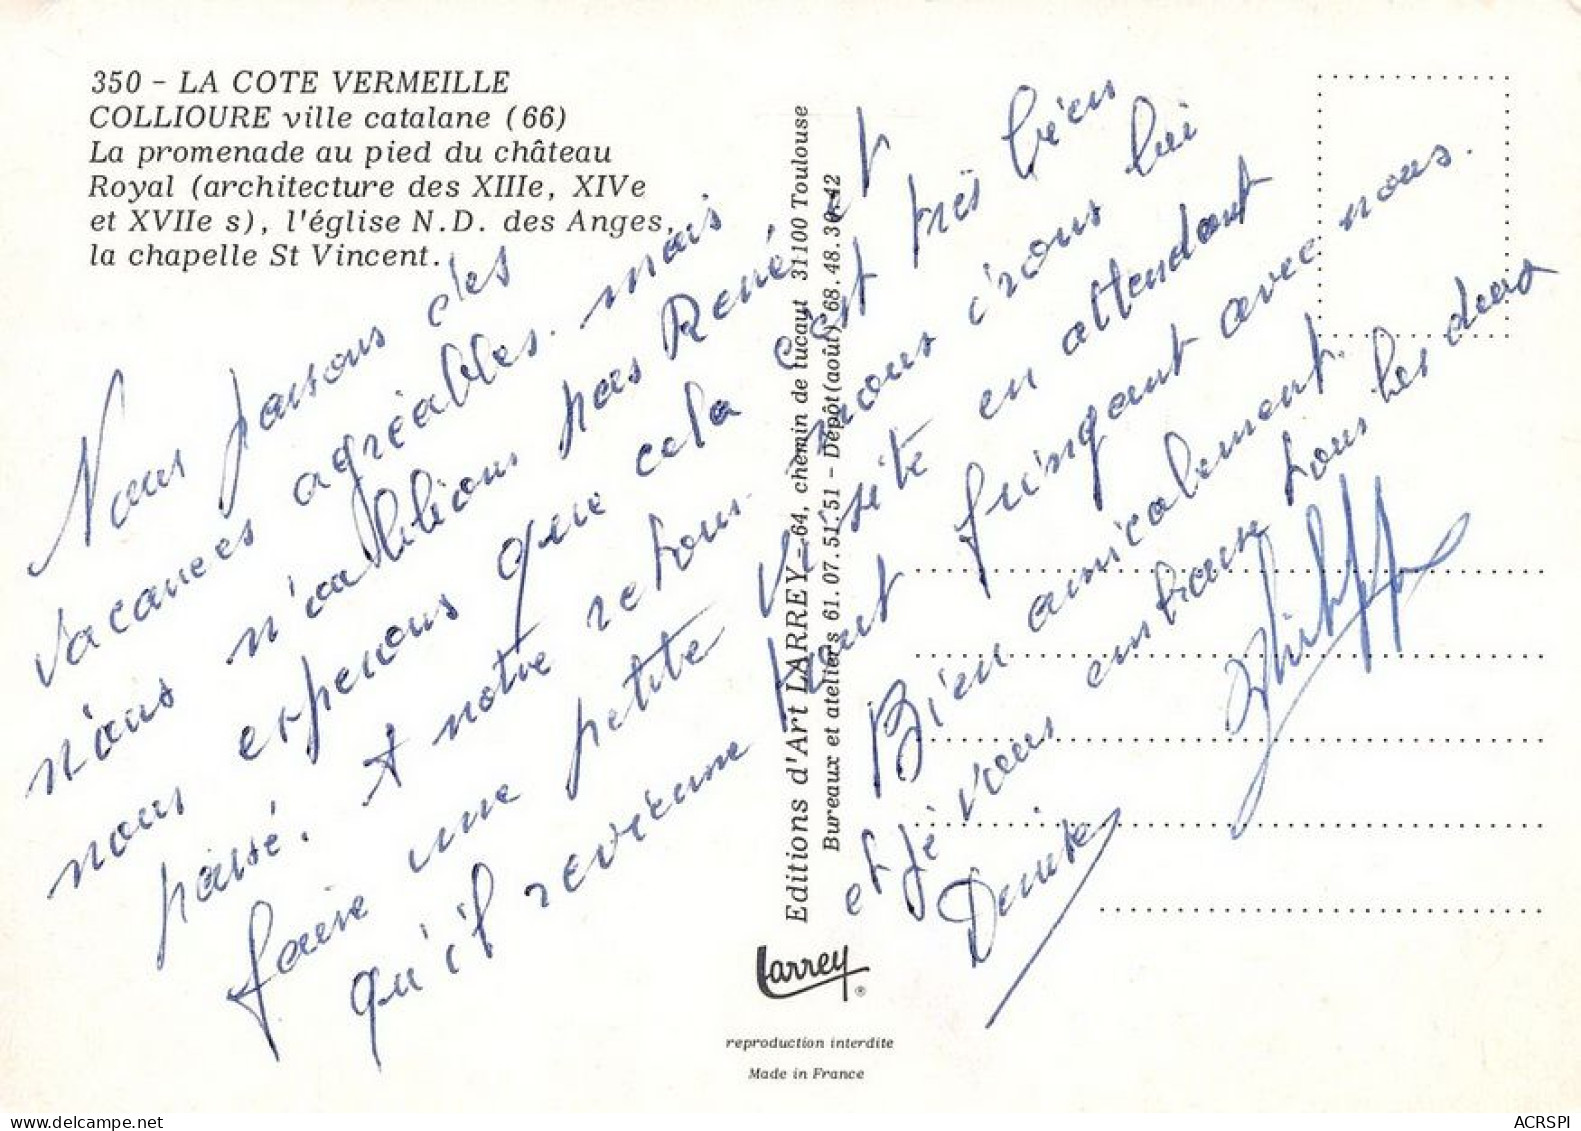 350 - LA COTE VERMEILLE
COLLIOURE ville catalane (66)
La promenade au pied du château
Royal (architecture des XIIIe, XIVe
et XVIIe s), l'église N.D. des Anges,
la chapelle St Vincent.
Nous passons des
vacances agréables. mais
nous n'oublions pas René et
nous espérons que cela s'est très bien
passé. A notre retour nous irons lui
faire une petite visite en attendant
qu'il revienne tout fringant avec nous.
Bien amicalement.
et je vous embrasse tous les deux
Denise
Philippe
Editions d'Art LARREY - 64, chemin de tucaut 31100 Toulouse
Bureaux et ateliers 61.07.51.51 - Dépôt (août) 68.48.30.42
Larrey ®
reproduction interdite
Made in France
ACRSPI